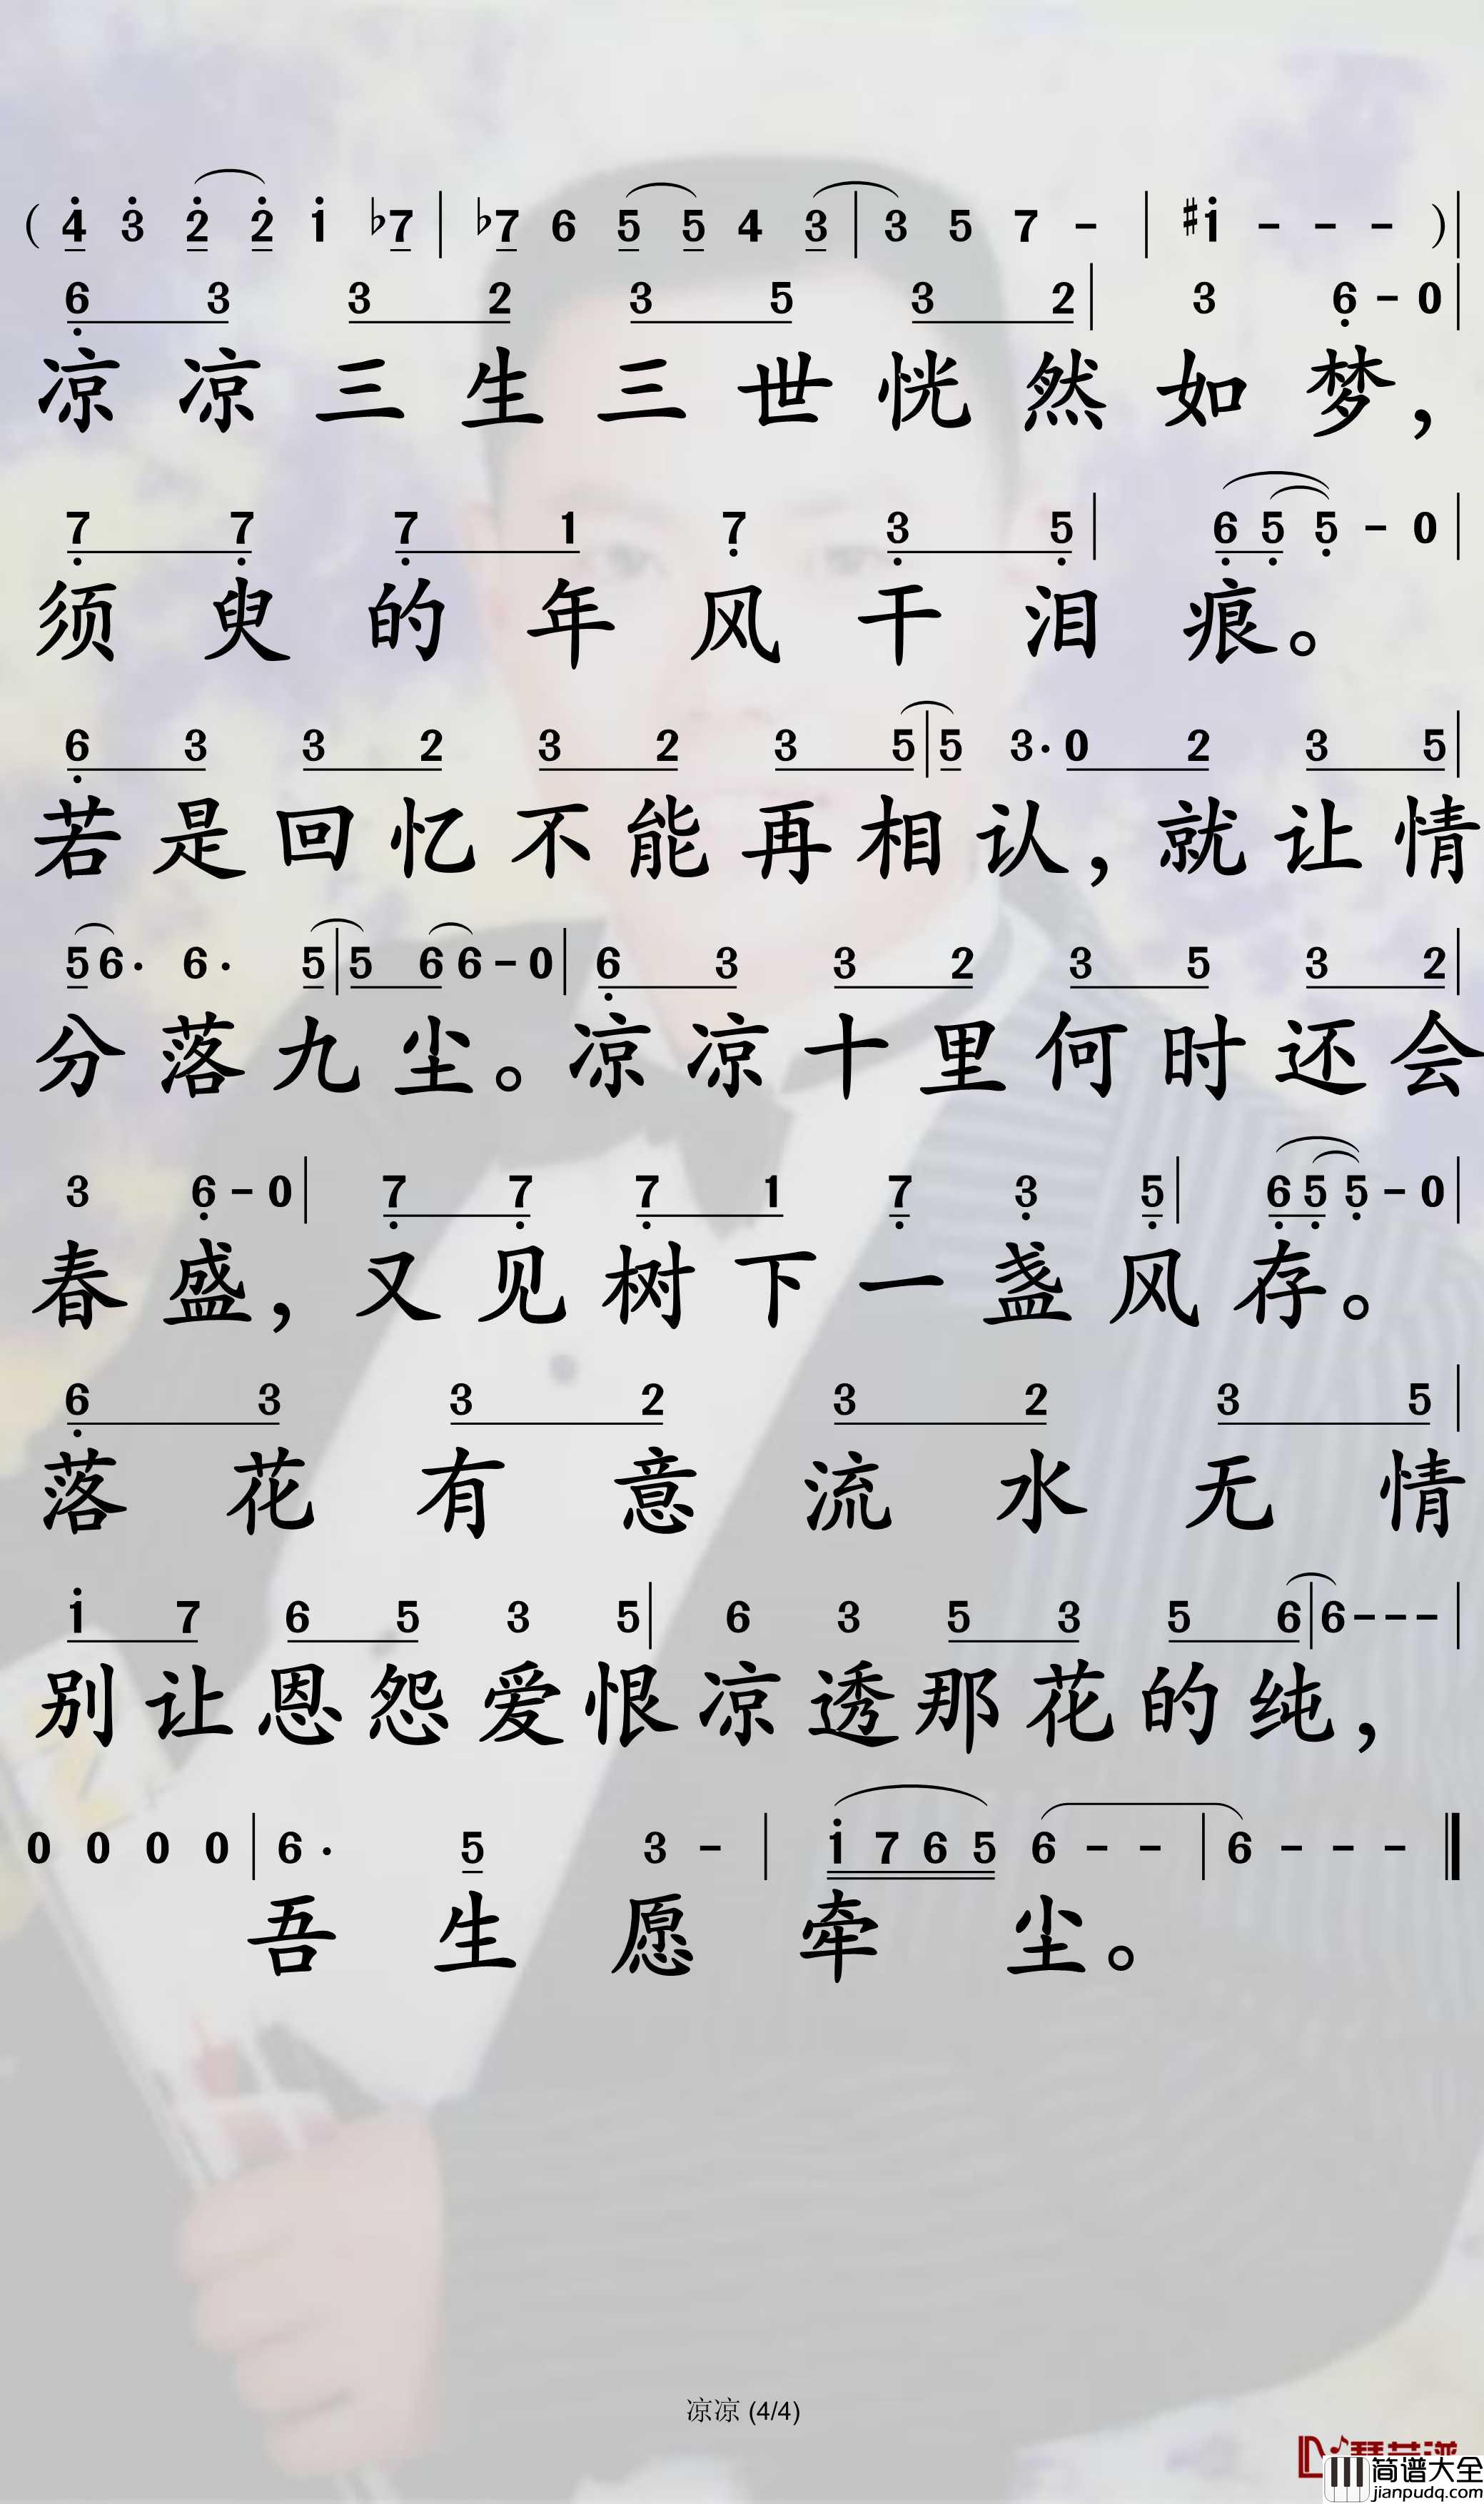 ( 4 3 2 2 1 ♭7 | ♭7 6 5 5 4 3 | 3 5 7 - | ♯1 - - - ) |
6 3 3 2 3 5 3 2 | 3 6 - 0 |
凉凉三生三世恍然如梦，
7 7 7 1 7 3 5 | 6 5 5 - 0 |
须臾的年风干泪痕。
6 3 3 2 3 2 3 5 | 5 3· 0 2 3 5 |
若是回忆不能再相认，就让情
5 6· 6· 5 | 5 6 6 - 0 | 6 3 3 2 3 5 3 2 |
分落九尘。凉凉十里何时还会
3 6 - 0 | 7 7 7 1 7 3 5 | 6 5 5 - 0 |
春盛，又见树下一盏风存。
6 3 3 2 3 2 3 5 |
落花有意流水无情
1 7 6 5 3 5 | 6 3 5 3 5 6 | 6 - - - |
别让恩怨爱恨凉透那花的纯，
0 0 0 0 | 6· 5 3 - | 1 7 6 5 6 - - | 6 - - - ‖
吾生愿牵尘。
凉凉 (4/4)
简谱大全
jianpudq.com